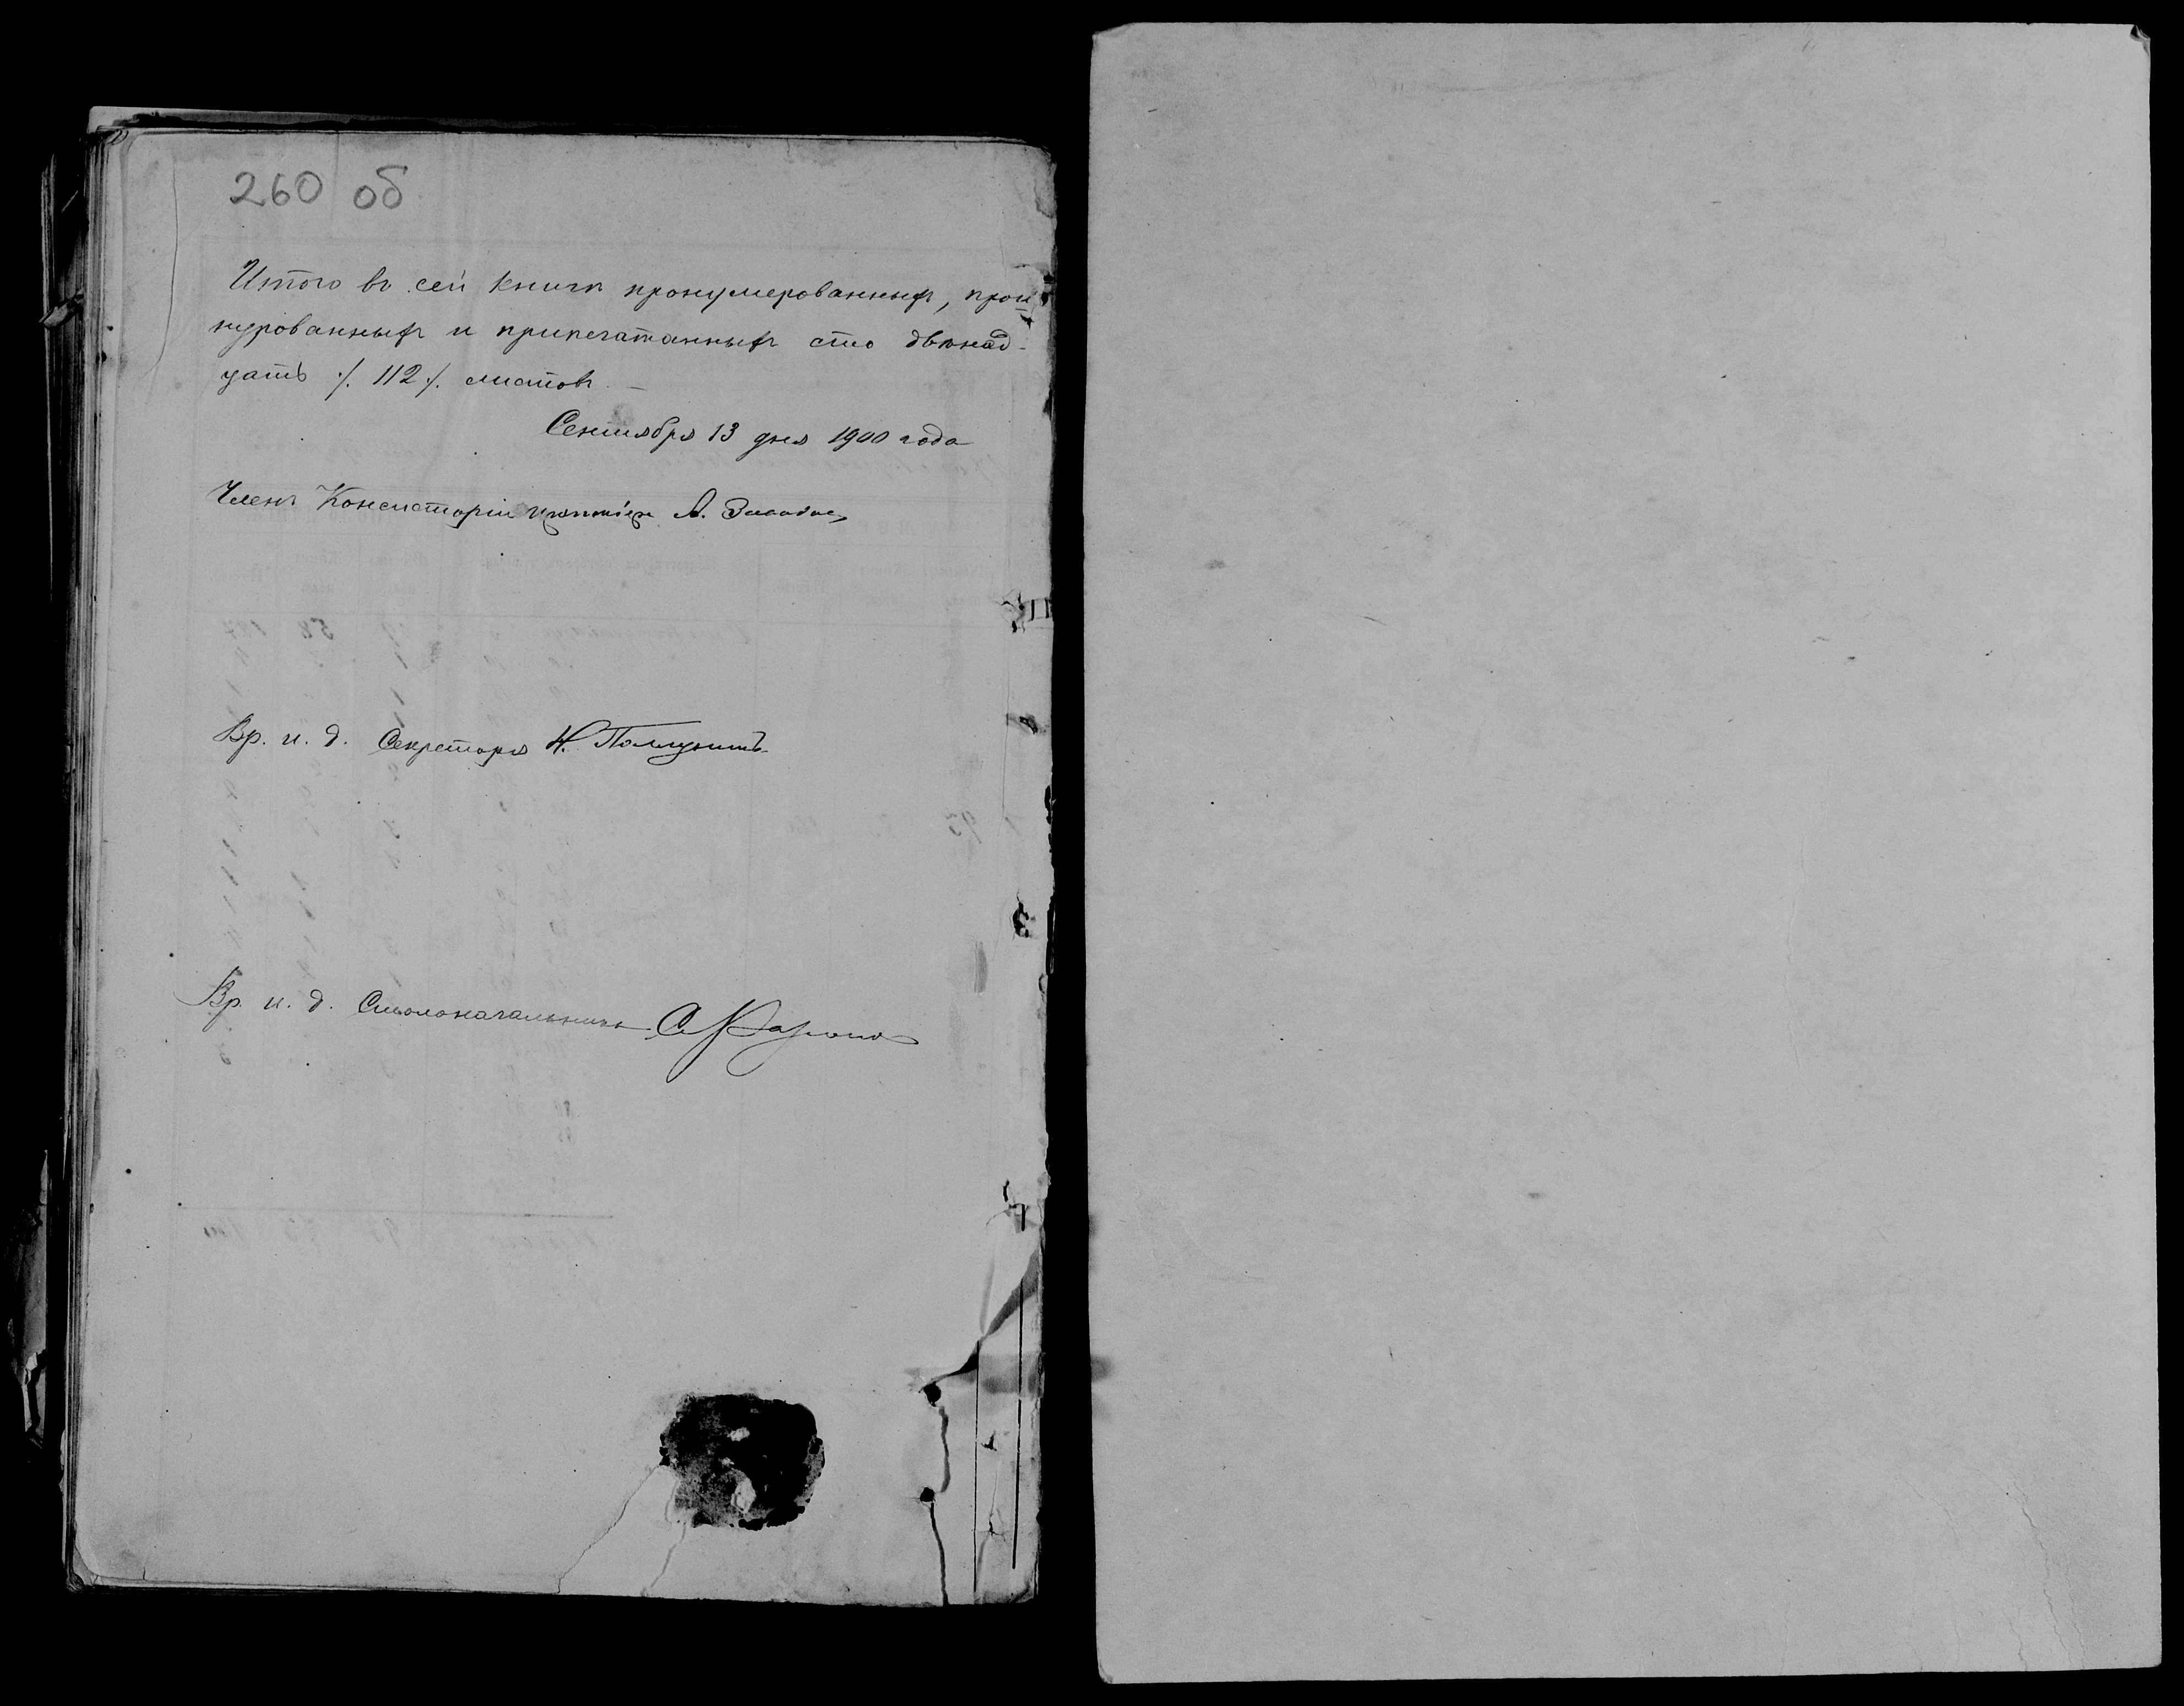 260 об
Итого въ сей книгѣ пронумерованныхъ, прош-
нурованныхъ и припечатанныхъ сто двѣнад-
цать ./. 112 ./. листовъ. –
Сентября 13 дня 1900 года
Членъ Консисторіи А.
Вр. и. д. Секретаря
Вр. и. д. Столоначальника